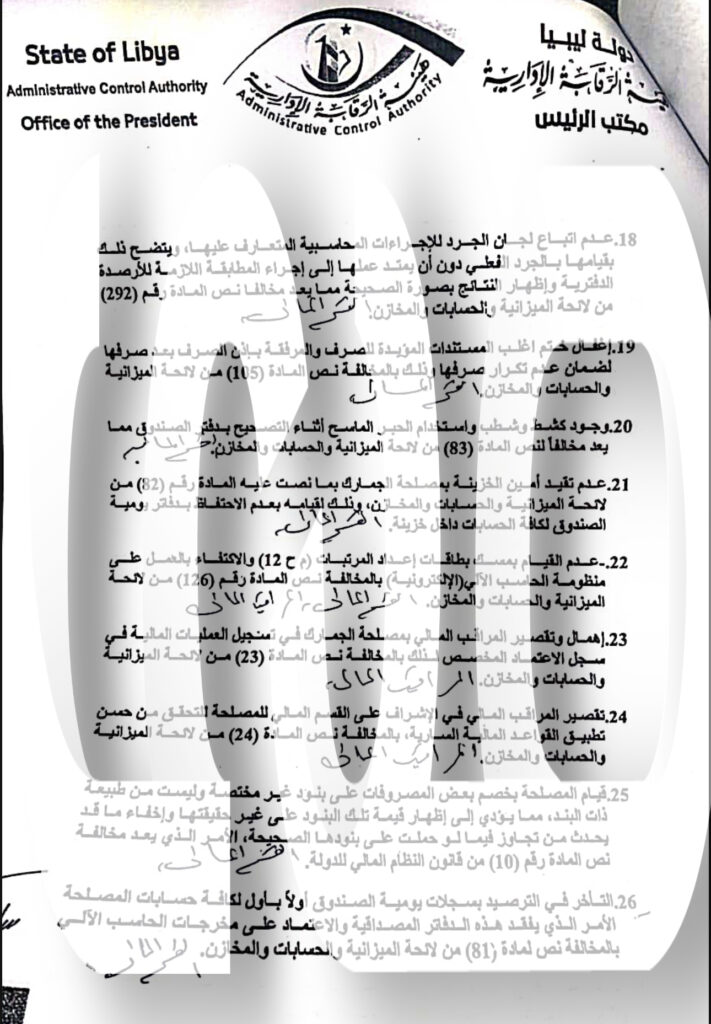 State of Libya
Administrative Control Authority
Office of the President
هيئة الرقابة الإدارية
Administrative Control Authority
دولة ليبيا
هيئة الرقابة الإدارية
مكتب الرئيس
18.عدم اتباع لجان الجرد للإجراءات المحاسبية المتعارف عليها، ويتضح ذلك
بقيامها بالجرد الفعلي دون أن يمتد عملها إلى إجراء المطابقة اللازمة للأرصدة
الدفترية وإظهار النتائج بصورة الصحيحة مما يعد مخالفا نص المادة رقم (292)
من لائحة الميزانية والحسابات والمخازن. القسم المالي
19.إغفال ختم اغلب المستندات المؤيدة للصرف والمرفقة بإذن الصرف بعد صرفها
لضمان عدم تكرار صرفها وذلك بالمخالفة نص المادة (105) من لائحة الميزانية
والحسابات والمخازن. القسم المالي
20.وجود كشط وشطب واستخدام الحبر الماسح أثناء التصحيح بدفتر الصندوق مما
يعد مخالفاً لنص المادة (83) من لائحة الميزانية والحسابات والمخازن.
21.عدم تقيد أمين الخزينة بمصلحة الجمارك بما نصت عليه المادة رقم (82) من
لائحة الميزانية والحسابات والمخازن، وذلك لقيامه بعدم الاحتفاظ بدفاتر يومية
الصندوق لكافة الحسابات داخل خزينة. القسم المالي
22.-عدم القيام بمسك بطاقات إعداد المرتبات (م ح 12) والاكتفاء بالعمل على
منظومة الحاسب الآلي(الإلكترونية) بالمخالفة نص المادة رقم (126) من لائحة
الميزانية والحسابات والمخازن. القسم المالي - المراقب المالي
23.إهمال وتقصير المراقب المالي بمصلحة الجمارك في تسجيل العمليات المالية في
سجل الاعتماد المخصص لذلك بالمخالفة نص المادة (23) من لائحة الميزانية
والحسابات والمخازن. المراقب المالي
24.تقصير المراقب المالي في الإشراف على القسم المالي للمصلحة للتحقق من حسن
تطبيق القواعد المالية السارية، بالمخالفة نص المادة (24) من لائحة الميزانية
والحسابات والمخازن. المراقب المالي
25.قيام المصلحة بخصم بعض المصروفات على بنود غير مختصة وليست من طبيعة
ذات البند، مما يؤدي إلى إظهار قيمة تلك البنود على غير حقيقتها وإخفاء ما قد
يحدث من تجاوز فيما لو حملت على بنودها الصحيحة، الأمر الذي يعد مخالفة
نص المادة رقم (10) من قانون النظام المالي للدولة. القسم المالي
26.التأخر في الترصيد بسجلات يومية الصندوق أولاً بأول لكافة حسابات المصلحة
الأمر الذي يفقد هذه الدفاتر المصداقية والاعتماد على مخرجات الحاسب الآلي
بالمخالفة نص لمادة (81) من لائحة الميزانية والحسابات والمخازن. القسم المالي